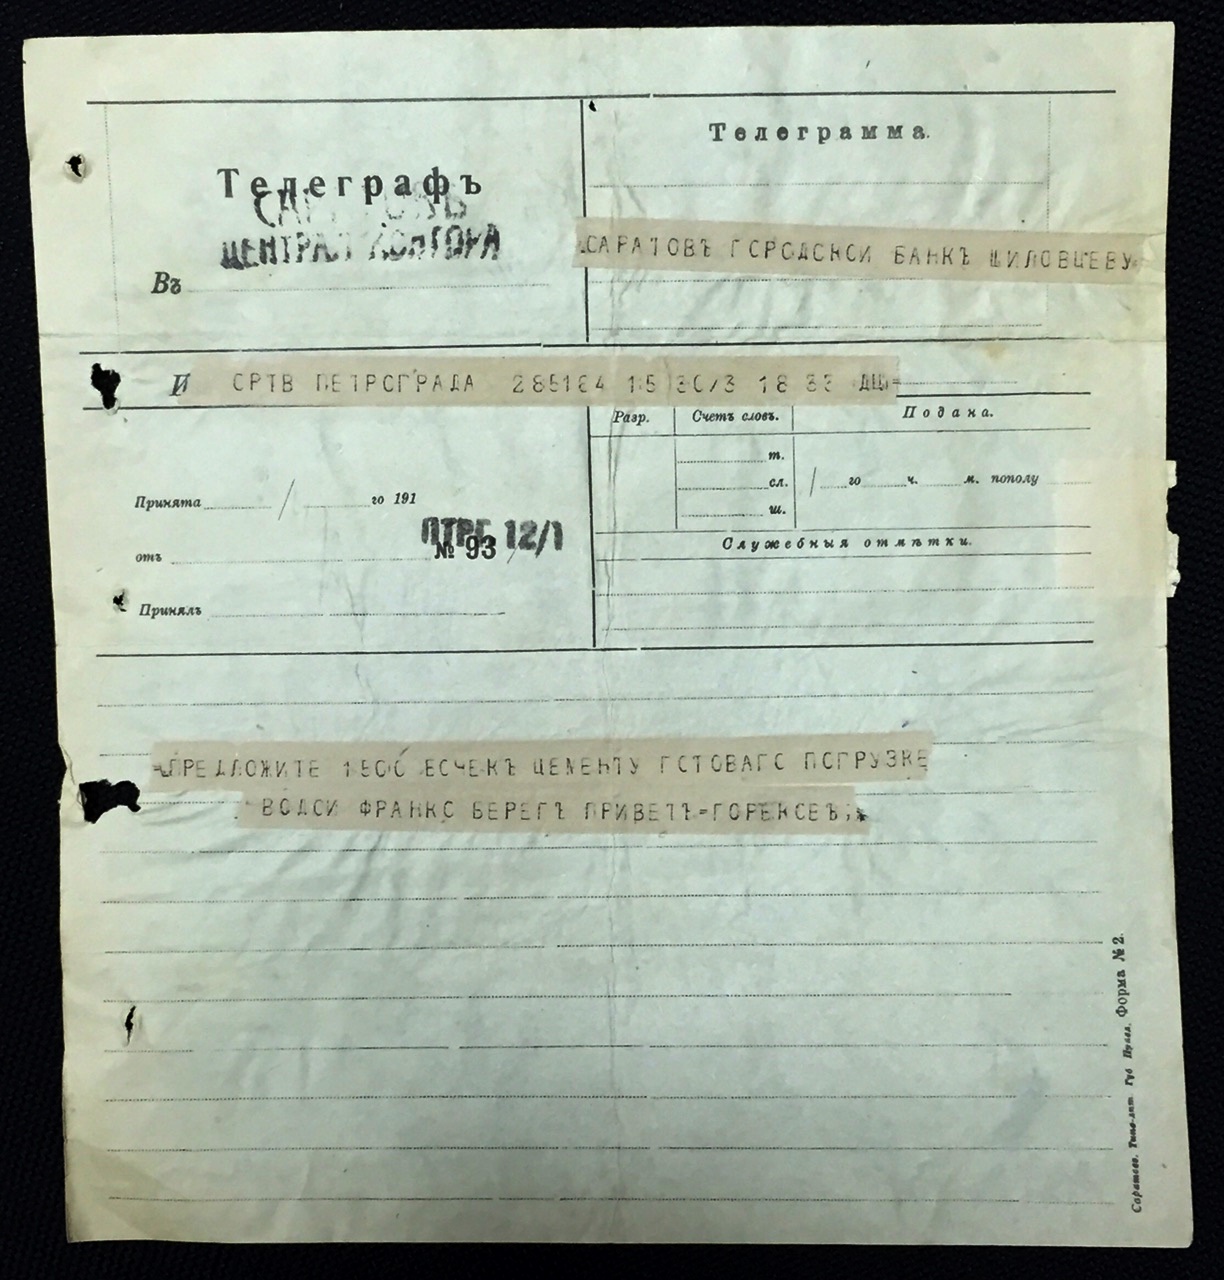 Телеграфъ
ЦЕНТРАЛ КОНТОРА
Въ
Телеграмма.
САРАТОВЪ ГОРОДСКОЙ БАНКЪ ШИЛОВЦЕВУ
И СРТВ ПЕТРОГРАДА 285184 15 30/3 18 33 ДЩ=
Разр. Счетъ словъ. Подана.
т.
сл.
ш.
го ч. м. пополу
Служебныя отмѣтки.
Принята го 191
ПТРГ 12/1
отъ № 93
Принялъ
=ПРЕДЛОЖИТЕ 1500 БОЧЕКЪ ЦЕМЕНТУ ГОТОВАГО ПОГРУЗКЕ
ВОДОЙ ФРАНКО БЕРЕГЪ ПРИВЕТЪ=
Форма № 2.